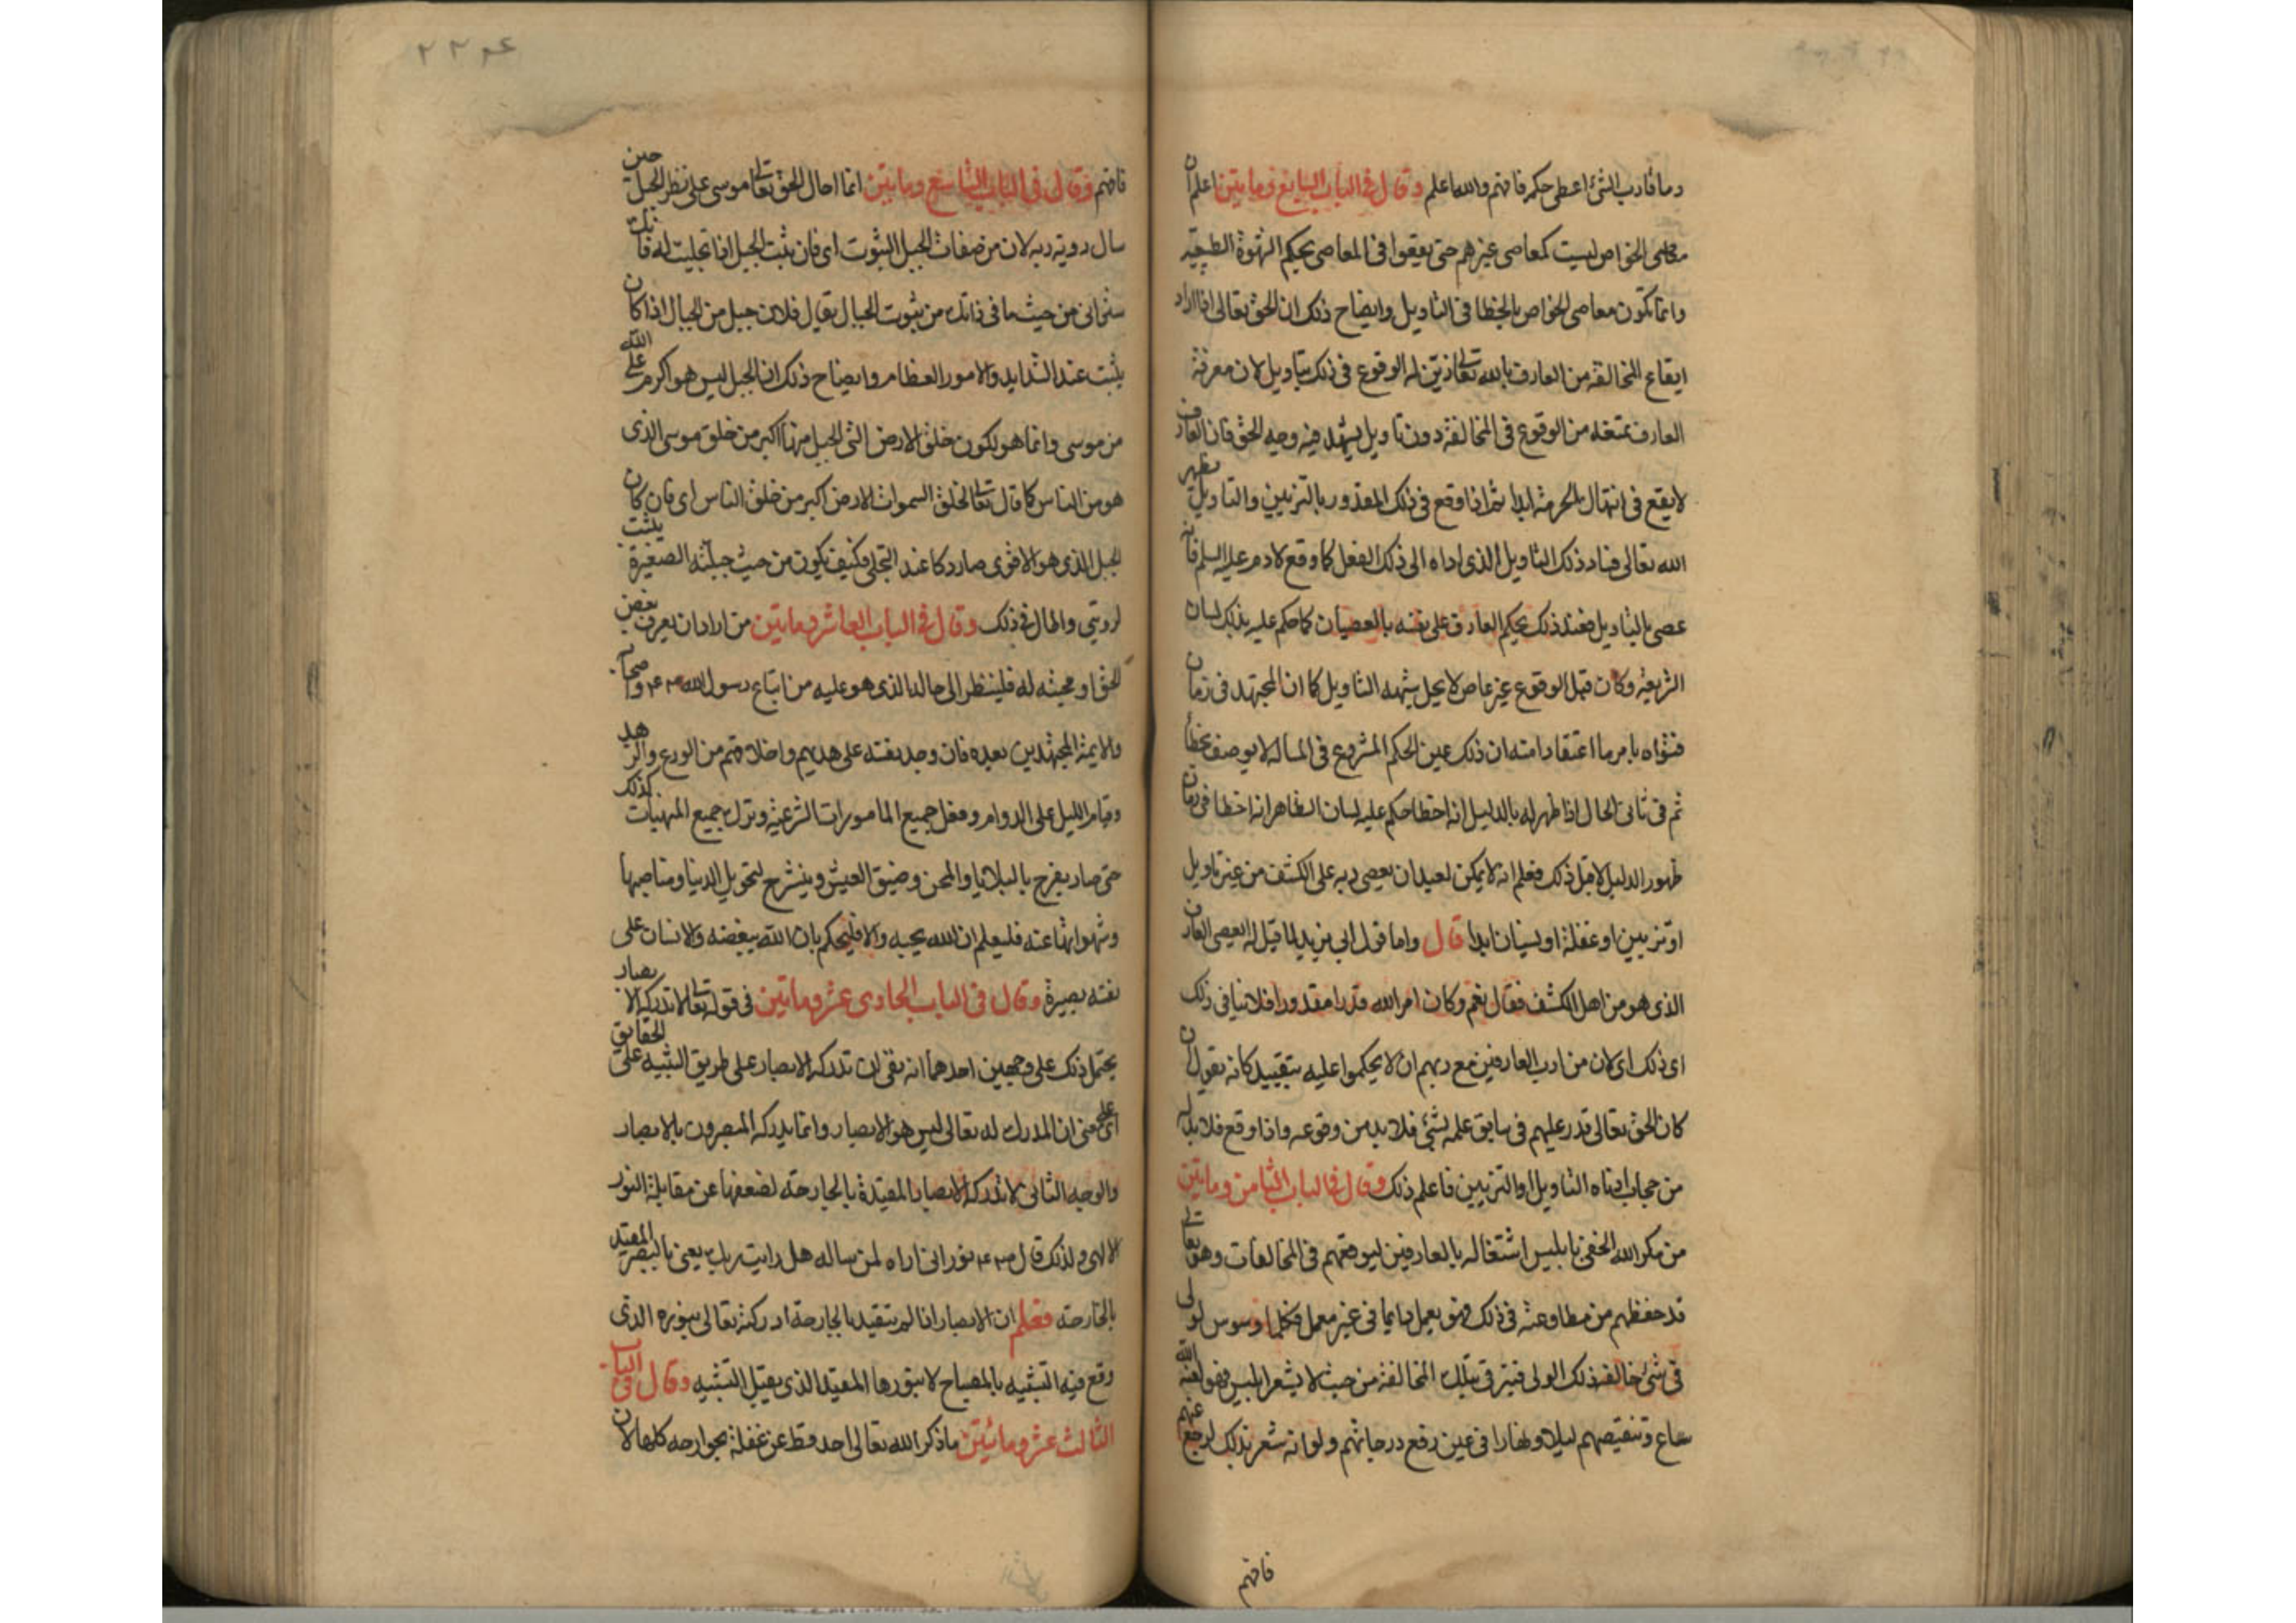 وما قارب الشئ اعطى حكمه فافهم والله اعلم وقال في الباب السابع ومايتين اعلم ان
معاصى الخواص ليست كمعاصى غيرهم حتى يقعوا في المعاصى بحكم الشهوة الطبيعية
وانما تكون معاصى الخواص بالخطا في التاويل وايضاح ذلك ان الحق تعالى اذا اراد
ايقاع المخالفة من العارف بالله تعالى زين له الوقوع في ذلك بتاويل لان معرفة
العارف تمنعه من الوقوع في المخالفة دون تاويل يشهد فيه وجه الحق فان العارف
لا يقع في انتهاك الحرمة ابدا ثم اذا وقع في ذلك المقدور بالتزيين والتاويل يظهر
الله تعالى فساد ذلك التاويل الذى اداه الى ذلك الفعل كما وقع لادم عليه السلم فانه
عصى بالتاويل فعند ذلك يحكم العارف على نفسه بالعصيان كما حكم عليه بذلك لسان
الشريعة وكان قبل الوقوع غير عاص لاجل شبهه التاويل كما ان المجتهد في زمان
فتواه بامر ما اعتقادا منه ان ذلك عين الحكم المشروع في المسالة لا يوصف بخطأ
ثم في ثانى الحال اذا ظهر له بالدليل انه اخطا حكم عليه لسان الظاهر انه اخطا في زمان
ظهور الدليل لا قبل ذلك فعلم انه لا يمكن لعبد ان يعصى ربه على الكشف من غير تاويل
او تزيين او غفلة او نسيان ابدا قال واما قول ابى يزيد لما قيل له ايعصى العارف
الذى هو من اهل الكشف فقال نعم وكان امر الله قدرا مقدورا فلا ينافى ذلك
اى ذلك اى لان من ادب العارفين مع ربهم ان لا يحكموا عليه بتقييد كانه يقول ان
كان الحق تعالى قدر عليهم في سابق علمه بشئ فلا بد من وقوعه واذا وقع فلا بد له
من حجاب ادناه التاويل او التزيين فاعلم ذلك وقال في الباب الثامن ومايتين
من مكر الله الخفى بابليس اشتغاله بالعارفين ليوقعهم في المخالفات وهو تعالى
قد حفظهم من مطاوعته في ذلك فهو يعمل دايما في غير معمل فكلما وسوس لولى
في شئ خالفه ذلك الولى فيترقى بتلك المخالفة من حيث لا يشعر ابليس فهو لعنه الله
ساع وتنقيصهم ليلا ونهارا في عين رفع درجاتهم ولو انه شعر بذلك لرجع عنهم
فافهم
فافهم وقال في الباب التاسع ومايتين انما احال الحق تعالى موسى على نظر الجبل حين
سال رويته ربه لان من صفات الجبل الثبوت اى فان ثبت الجبل اذا تجليت له فانك
سترانى من حيث ما في ذاتك من ثبوت الجبال يقال فلان جبل من الجبال اذا كان
يثبت عند الشدايد والامور العظام وايضاح ذلك ان الجبل ليس هو اكرم على الله
من موسى وانما هو لكون خلق الارض التى الجبل منها اكبر من خلق موسى الذى
هو من الناس كما قال تعالى لخلق السموات والارض اكبر من خلق الناس اى فان كان
الجبل الذى هو الاقوى صار دكا عند التجلى فكيف تكون من حيث جبلته الصغيرة يثبت
لرويتى والحال في ذلك وقال في الباب العاشر ومايتين من اراد ان يعرف بغض
الحق او محبته له فلينظر الى حاله الذى هو عليه من اتباع رسول الله صلعم واصحابه
والايمة المجتهدين بعده فان وجد نفسه على هديهم واخلاقهم من الورع والزهد
وقيام الليل على الدوام وفعل جميع المامورات الشرعية وترك جميع المنهيات كذلك
حتى صار يفرح بالبلايا والمحن وضيق العيش وينشرح لتحويل الدنيا ومناصبها
وشهواتها عنه فليعلم ان الله يحبه والا فليحكم بان الله يبغضه والانسان على
نفسه بصيرة وقال في الباب الحادى عشر ومايتين في قوله تعالى لا تدركه الابصار
يحتمل ذلك على وجهين احدهما انه نفى ان تدركه الابصار على طريق التنبيه على الحقايق
اى على معنى ان المدرك له تعالى ليس هو الابصار وانما يدركه المبصرون بالابصار
والوجه الثانى لا تدركه الابصار المقيدة بالجارحة لضعفها عن مقابلة النور
الالهى ولذلك قال صلعم نور انى اراه لمن ساله هل رايت ربك يعنى بالبصر المقيد
بالجارحة فعلم ان الابصار اذا لم تتقيد بالجارحة ادركته تعالى بنوره الذى
وقع فيه التشبيه بالمصباح لا بنورها المقيد الذى يقبل التشبيه وقال في الباب
الثالث عشر ومائتين ما ذكر الله تعالى احد قط عن غفلة بجوارحه كلها لان